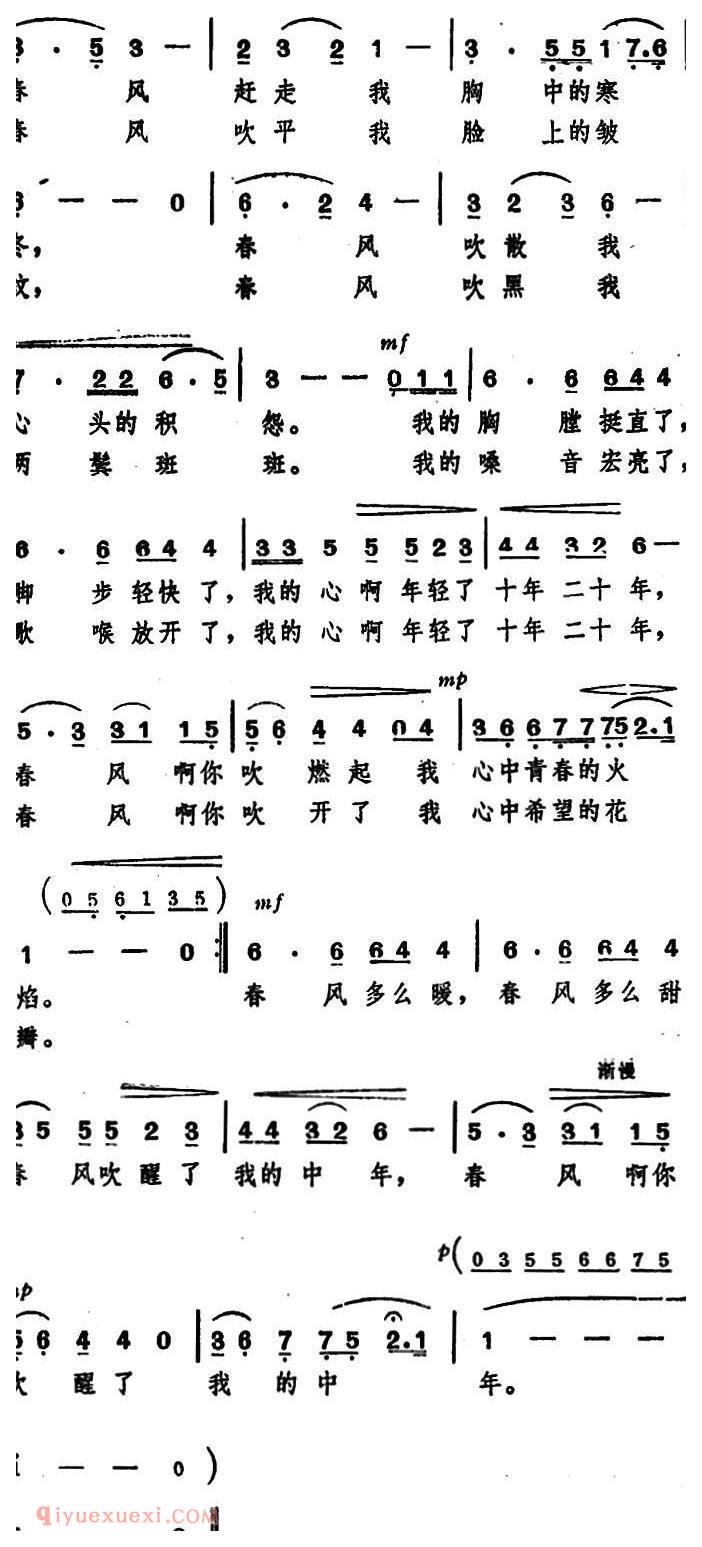 3 · 5 3 — | 2 3 2 1 — | 3 · 5 5 1 7 · 6 |
春 风 赶 走 我 胸 中的寒
春 风 吹 平 我 脸 上的皱
6 — — 0 | 6 · 2 4 — | 3 2 3 6 —
冬, 春 风 吹 散 我
纹, 春 风 吹 黑 我
7 · 2 2 6 · 5 | 3 — — 0 1 1 | 6 · 6 6 4 4
mf
心 头的 积 怨。 我的 胸 膛 挺直了,
两 鬓 斑 斑。 我的 嗓 音 宏亮了,
6 · 6 6 4 4 | 3 3 5 5 5 2 3 | 4 4 3 2 6 —
脚 步 轻快 了, 我的 心 啊 年轻了 十年 二十 年,
歌 喉 放开 了, 我的 心 啊 年轻了 十年 二十 年,
mp
5 · 3 3 1 1 5 | 5 6 4 4 0 4 | 3 6 6 7 7 7 5 2 . 1
春 风 啊你 吹 燃 起 我 心中青春的火
春 风 啊你 吹 开 了 我 心中希望的花
( 0 5 6 1 3 5 ) mf
1 — — 0 :| 6 · 6 6 4 4 | 6 · 6 6 4 4
焰。 春 风多么 暖, 春 风多么 甜
瓣。
渐慢
3 5 5 5 2 3 | 4 4 3 2 6 — | 5 · 3 3 1 1 5
春 风吹 醒 了 我的 中 年, 春 风 啊你
p ( 0 3 5 5 6 6 7 5
mp
5 6 4 4 0 | 3 6 7 7 5 2 . 1 | 1 — — —
吹 醒 了 我 的 中 年。
1 — — 0 )
qiyuexuexi.com